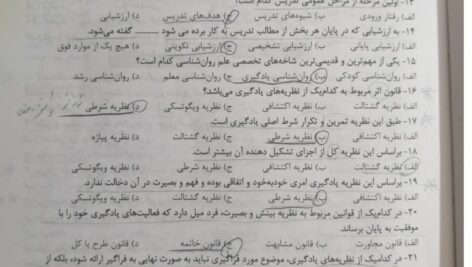 ۱۳- اولین مرحله از مراحل عمومی تدریس کدام است؟
الف) رفتار ورودی ب) شیوه‌های تدریس ج) هدف‌های تدریس د) ارزشیابی
۱۴- به ارزشیابی که در پایان هر بخش از مطالب تدریس به کار برده می شود ......... گفته می‌شود.
الف) ارزشیابی پایانی ب) ارزشیابی تشخیصی ج) ارزشیابی تکوینی د) هیچ یک از موارد فوق
۱۵- یکی از مهم‌ترین و قدیمی‌ترین شاخه‌های تخصصی علم روان‌شناسی کدام است؟
الف) روان‌شناسی کودکی ب) روان‌شناسی یادگیری ج) روان‌شناسی معلم د) روان‌شناسی رشد
۱۶- قانون اثر مربوط به کدام‌یک از نظریه‌های یادگیری می‌باشد؟
الف) نظریه اکتشافی ب) نظریه گشتالت ج) نظریه ویگوتسکی د) نظریه شرطی
۱۷- طبق این نظریه تمرین و تکرار شرط اصلی یادگیری است.
الف) نظریه اکتشافی ب) نظریه شرطی ج) نظریه گشتالت د) نظریه پیاژه
۱۸- براساس این نظریه کل از اجزای تشکیل دهنده آن بیشتر است.
الف) نظریه گشتالت ب) نظریه اکتشافی ج) نظریه شرطی د) نظریه ویگوتسکی
۱۹- براساس این نظریه یادگیری امری خودبه‌خود و اتفاقی بوده و فهم و بصیرت در آن دخالت ندارد.
الف) نظریه اکتشافی ب) نظریه شرطی ج) نظریه گشتالت د) نظریه ویگوتسکی
۲۰- در کدام‌یک از قوانین مربوط به نظریه بینش و بصیرت، فرد میل دارد که فعالیت‌های یادگیری خود را با
موفقیت به پایان برساند.
الف) قانون مجاورت ب) قانون مشابهت ج) قانون خاتمه د) قانون طرح یا کل
۲۱- در کدام‌یک از نظریه‌های یادگیری، موضوع مورد فراگیری نباید به صورت نهایی به فراگیر ارائه شود، بلکه از